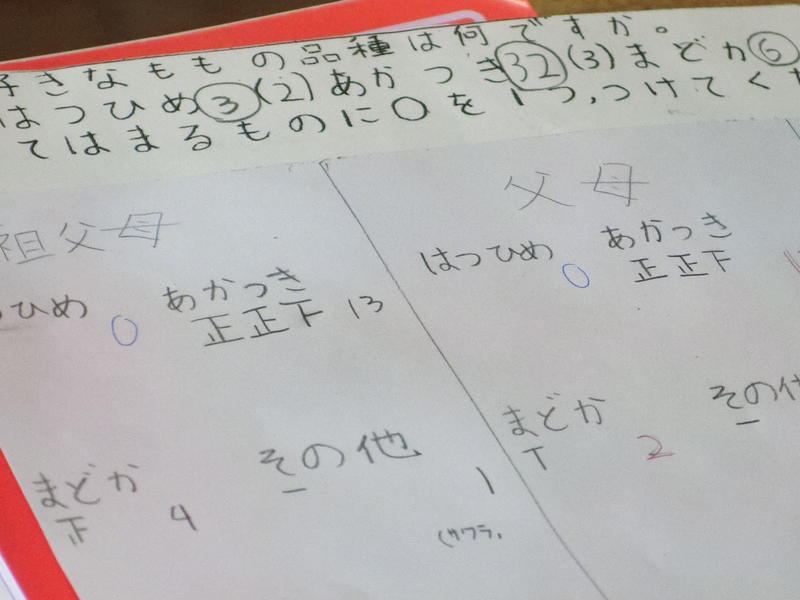 好きなももの品種は何ですか。
はつひめ③(2)あかつき㉜(3)まどか⑥
てはまるものに○を1つ、つけてくだ
祖父母
つひめ 0 あかつき 正正下 13
まどか 正 4 その他 一 1
(サワラ,
父母
はつひめ 0 あかつき 正正下
まどか T 2 その他 一